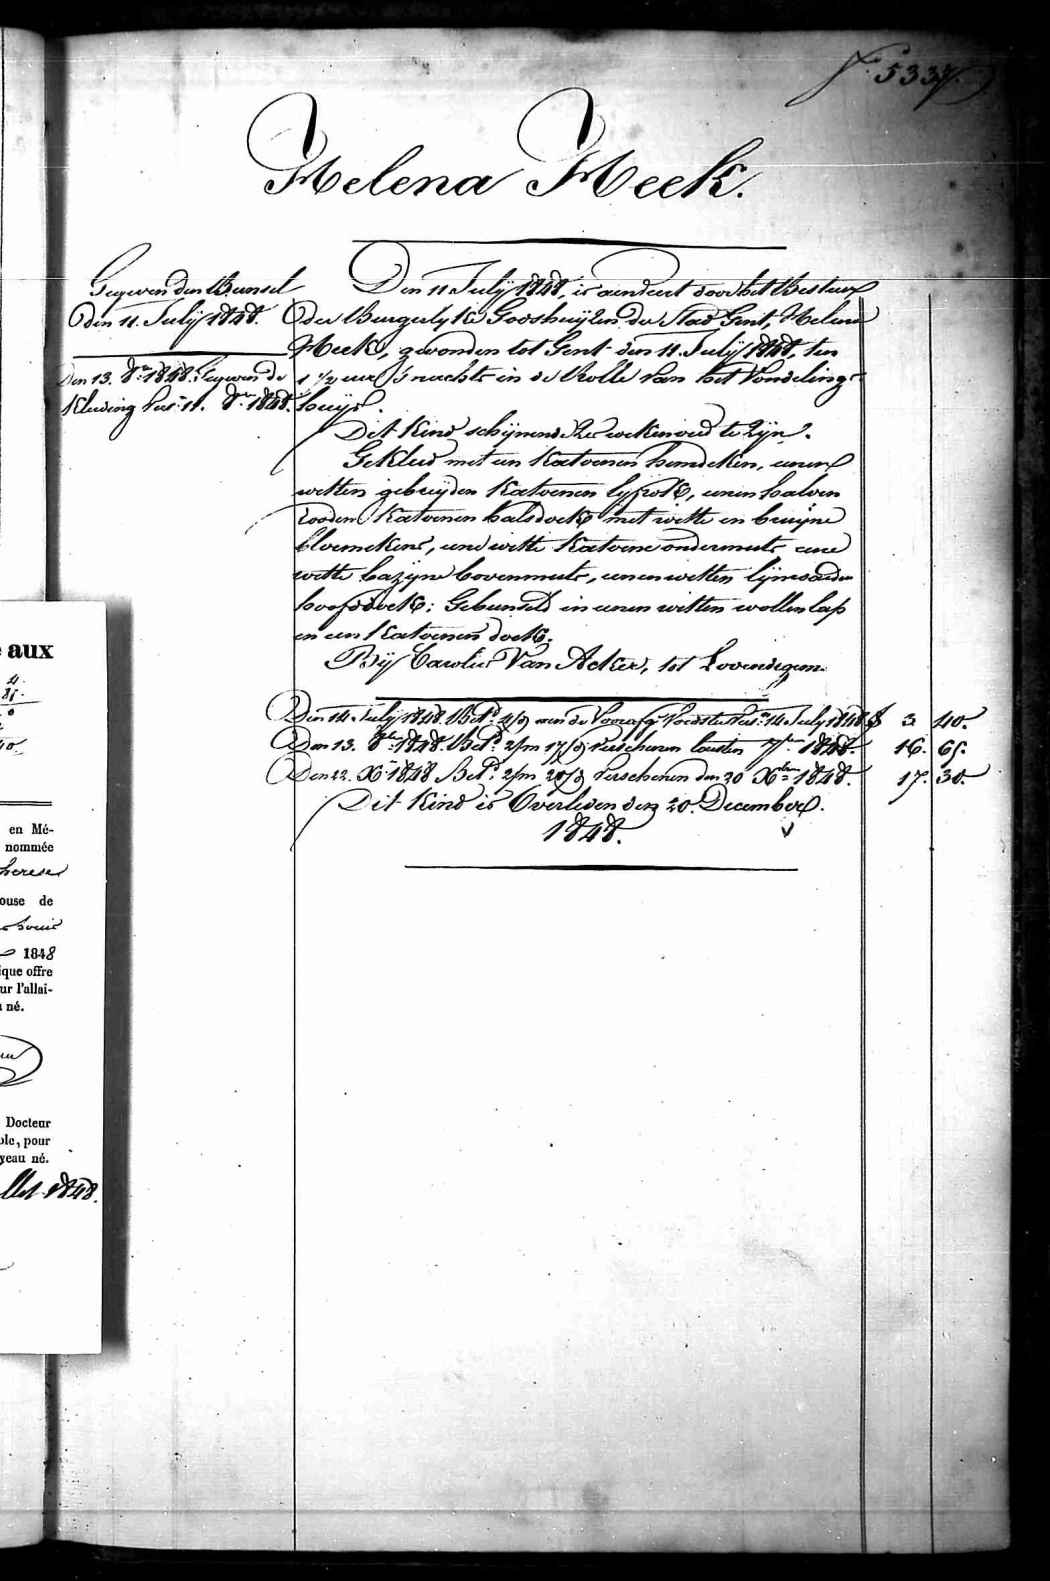 f. 5337.
Helena Heek.
Gegeven den Bunsel
den 11. July 1848.
Den 13. 8bre 1848. Gegeven de
Kleeding Vers: 11. 8bre 1848.
Den 11 July 1848, is aenveert door het Bestuer
der Burgerlyke Godshuyzen der Stad Gent, Helena
Heek, gevonden tot Gent den 11. July 1848, ten
1 1/2 ure 's nachts in de Rolle van het Vondeling-
huys.
Dit Kind schynende weken oud te zyn.
Gekleed met een Katoenen hemdeken, eenen
witten gebreyden Katoenen lyfrok, eenen halven
rooden Katoenen halsdoek met witte en bruyne
bloemekens, eene witte Katoene ondermuts eene
witte bazyne bovenmuts, eenen witten lynwaeden
hoofddoek: Gebunseld in eenen witten wollen lap
en een Katoenen doek.
By Carolus Van Acker, tot Lovendegem.
Den 14. July 1848. Bet.d 4/d aen de Voorafg. Voedster Vers.n 14 July 1848 f 3 40.
Den 13. 8bre 1848. Bet.d 2/m 17/d verschenen lousten 7bre 1848. 16. 65.
Den 22. Xbre 1848 Bet.d 2/m 20/d verschenen den 20 Xbre 1848. 17. 30.
Dit Kind is Overleden den 20. December
1848.
e aux
4.
en Mé-
nommée
herese
ouse de
1848
ique offre
ur l'allai-
né.
Docteur
ole, pour
veau né.
llet 1848.